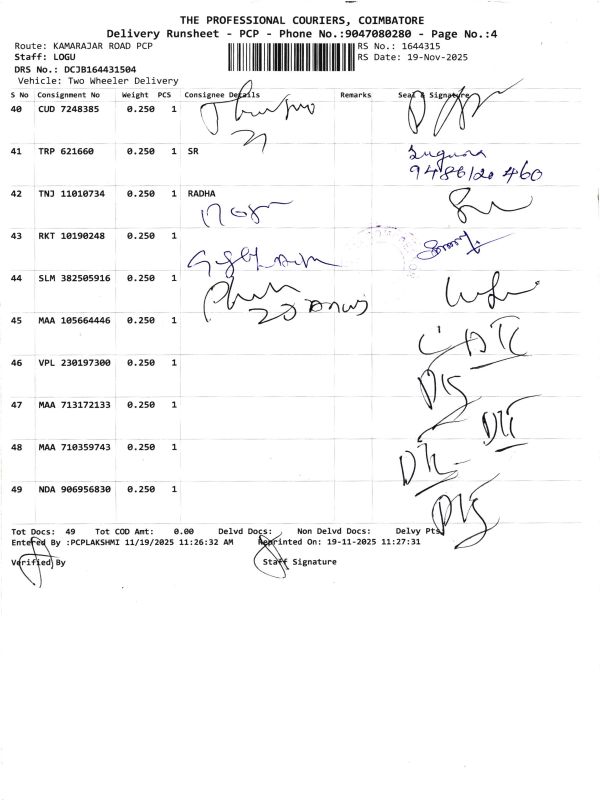 THE PROFESSIONAL COURIERS, COIMBATORE
Delivery Runsheet - PCP - Phone No.:9047080280 - Page No.:4
Route: KAMARAJAR ROAD PCP RS No.: 1644315
Staff: LOGU RS Date: 19-Nov-2025
DRS No.: DCJB164431504
Vehicle: Two Wheeler Delivery
S No Consignment No Weight PCS Consignee Details Remarks Seal & Signature
40 CUD 7248385 0.250 1
41 TRP 621660 0.250 1 SR
9486120460
42 TNJ 11010734 0.250 1 RADHA
43 RKT 10190248 0.250 1
44 SLM 382505916 0.250 1
45 MAA 105664446 0.250 1
46 VPL 230197300 0.250 1
47 MAA 713172133 0.250 1
48 MAA 710359743 0.250 1
49 NDA 906956830 0.250 1
Tot Docs: 49 Tot COD Amt: 0.00 Delvd Docs: Non Delvd Docs: Delvy Pts
Entered By :PCPLAKSHMI 11/19/2025 11:26:32 AM Reprinted On: 19-11-2025 11:27:31
Verified By Staff Signature